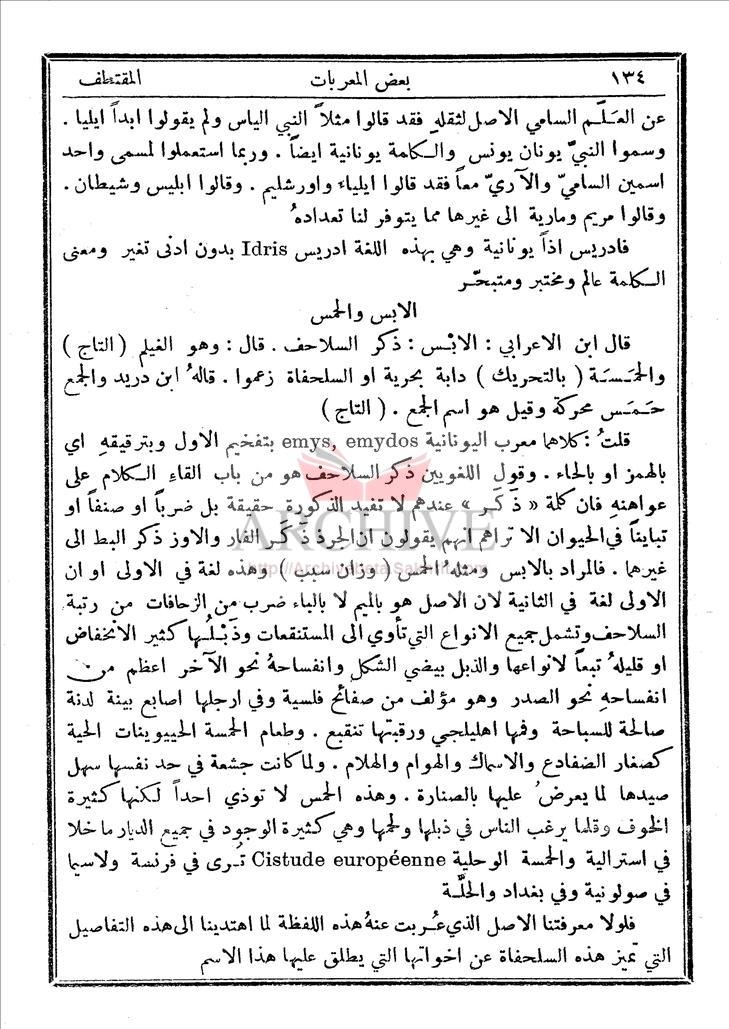 ١٣٤ بعض المعربات المقتطف
عن العَلَم السامي الاصل لثقلهِ فقد قالوا مثلاً النبي الياس ولم يقولوا ابداً ايليا .
وسموا النبيّ يونان يونس والكلمة يونانية ايضاً . وربما استعملوا لمسمى واحد
اسمين الساميّ والآريّ معاً فقد قالوا ايلياء واورشليم . وقالوا ابليس وشيطان .
وقالوا مريم ومارية الى غيرها مما يتوفر لنا تعدادهُ
فادريس اذاً يونانية وهي بهذه اللغة ادريس Idris بدون ادنى تغير ومعنى
الكلمة عالم ومختبر ومتبحّر
الابس والحمس
قال ابن الاعرابي : الابْس : ذكر السلاحف . قال : وهو الغيلم ( التاج )
والحمَسَة ( بالتحريك ) دابة بحرية او السلحفاة زعموا . قالهُ ابن دريد والجمع
حَمَس محركة وقيل هو اسم الجمع . ( التاج )
قلتُ : كلاهما معرب اليونانية emys, emydos بتفخيم الاول وبترقيقهِ اي
بالهمز او بالحاء . وقول اللغويين ذكر السلاحف هو من باب القاءِ الكلام على
عواهنهِ فان كلمة « ذَكَر » عندهم لا تفيد الذكورة حقيقة بل ضرباً او صنفاً او
تبايناً في الحيوان الا تراهم انهم يقولون ان الجرذ ذَكَر الفار والاوز ذكر البط الى
غيرهما . فالمراد بالابس ومثلهُ الحمس ( وزان سبب ) وهذه لغة في الاولى او ان
الاولى لغة في الثانية لان الاصل هو بالميم لا بالباء ضرب من الزحافات من رتبة
السلاحف وتشمل جميع الانواع التي تأوي الى المستنقعات وذَبْلُها كثير الانخفاض
او قليلهُ تبعاً لانواعها والذبل بيضي الشكل وانفساحهُ نحو الآخر اعظم من
انفساحهِ نحو الصدر وهو مؤلف من صفائح فلسية وفي ارجلها اصابع بينة لدنة
صالحة للسباحة وفمها اهليلجي ورقبتها تنقبع . وطعام الحمسة الحييوينات الحية
كصغار الضفادع والاسماك والهوام والهلام . ولما كانت جشعة في حد نفسها سهل
صيدها لما يعرضُ عليها بالصنارة . وهذه الحمس لا توذي احداً لكنها كثيرة
الخوف وقلما يرغب الناس في ذبلها ولحمها وهي كثيرة الوجود في جميع الديار ما خلا
في استرالية والحمسة الوحلية Cistude européenne تُرى في فرنسة ولاسيما
في صولونية وفي بغداد والحلّة
فلولا معرفتنا الاصل الذي عُربت عنهُ هذه اللفظة لما اهتدينا الى هذه التفاصيل
التي تميز هذه السلحفاة عن اخواتها التي يطلق عليها هذا الاسم
ARCHIVE